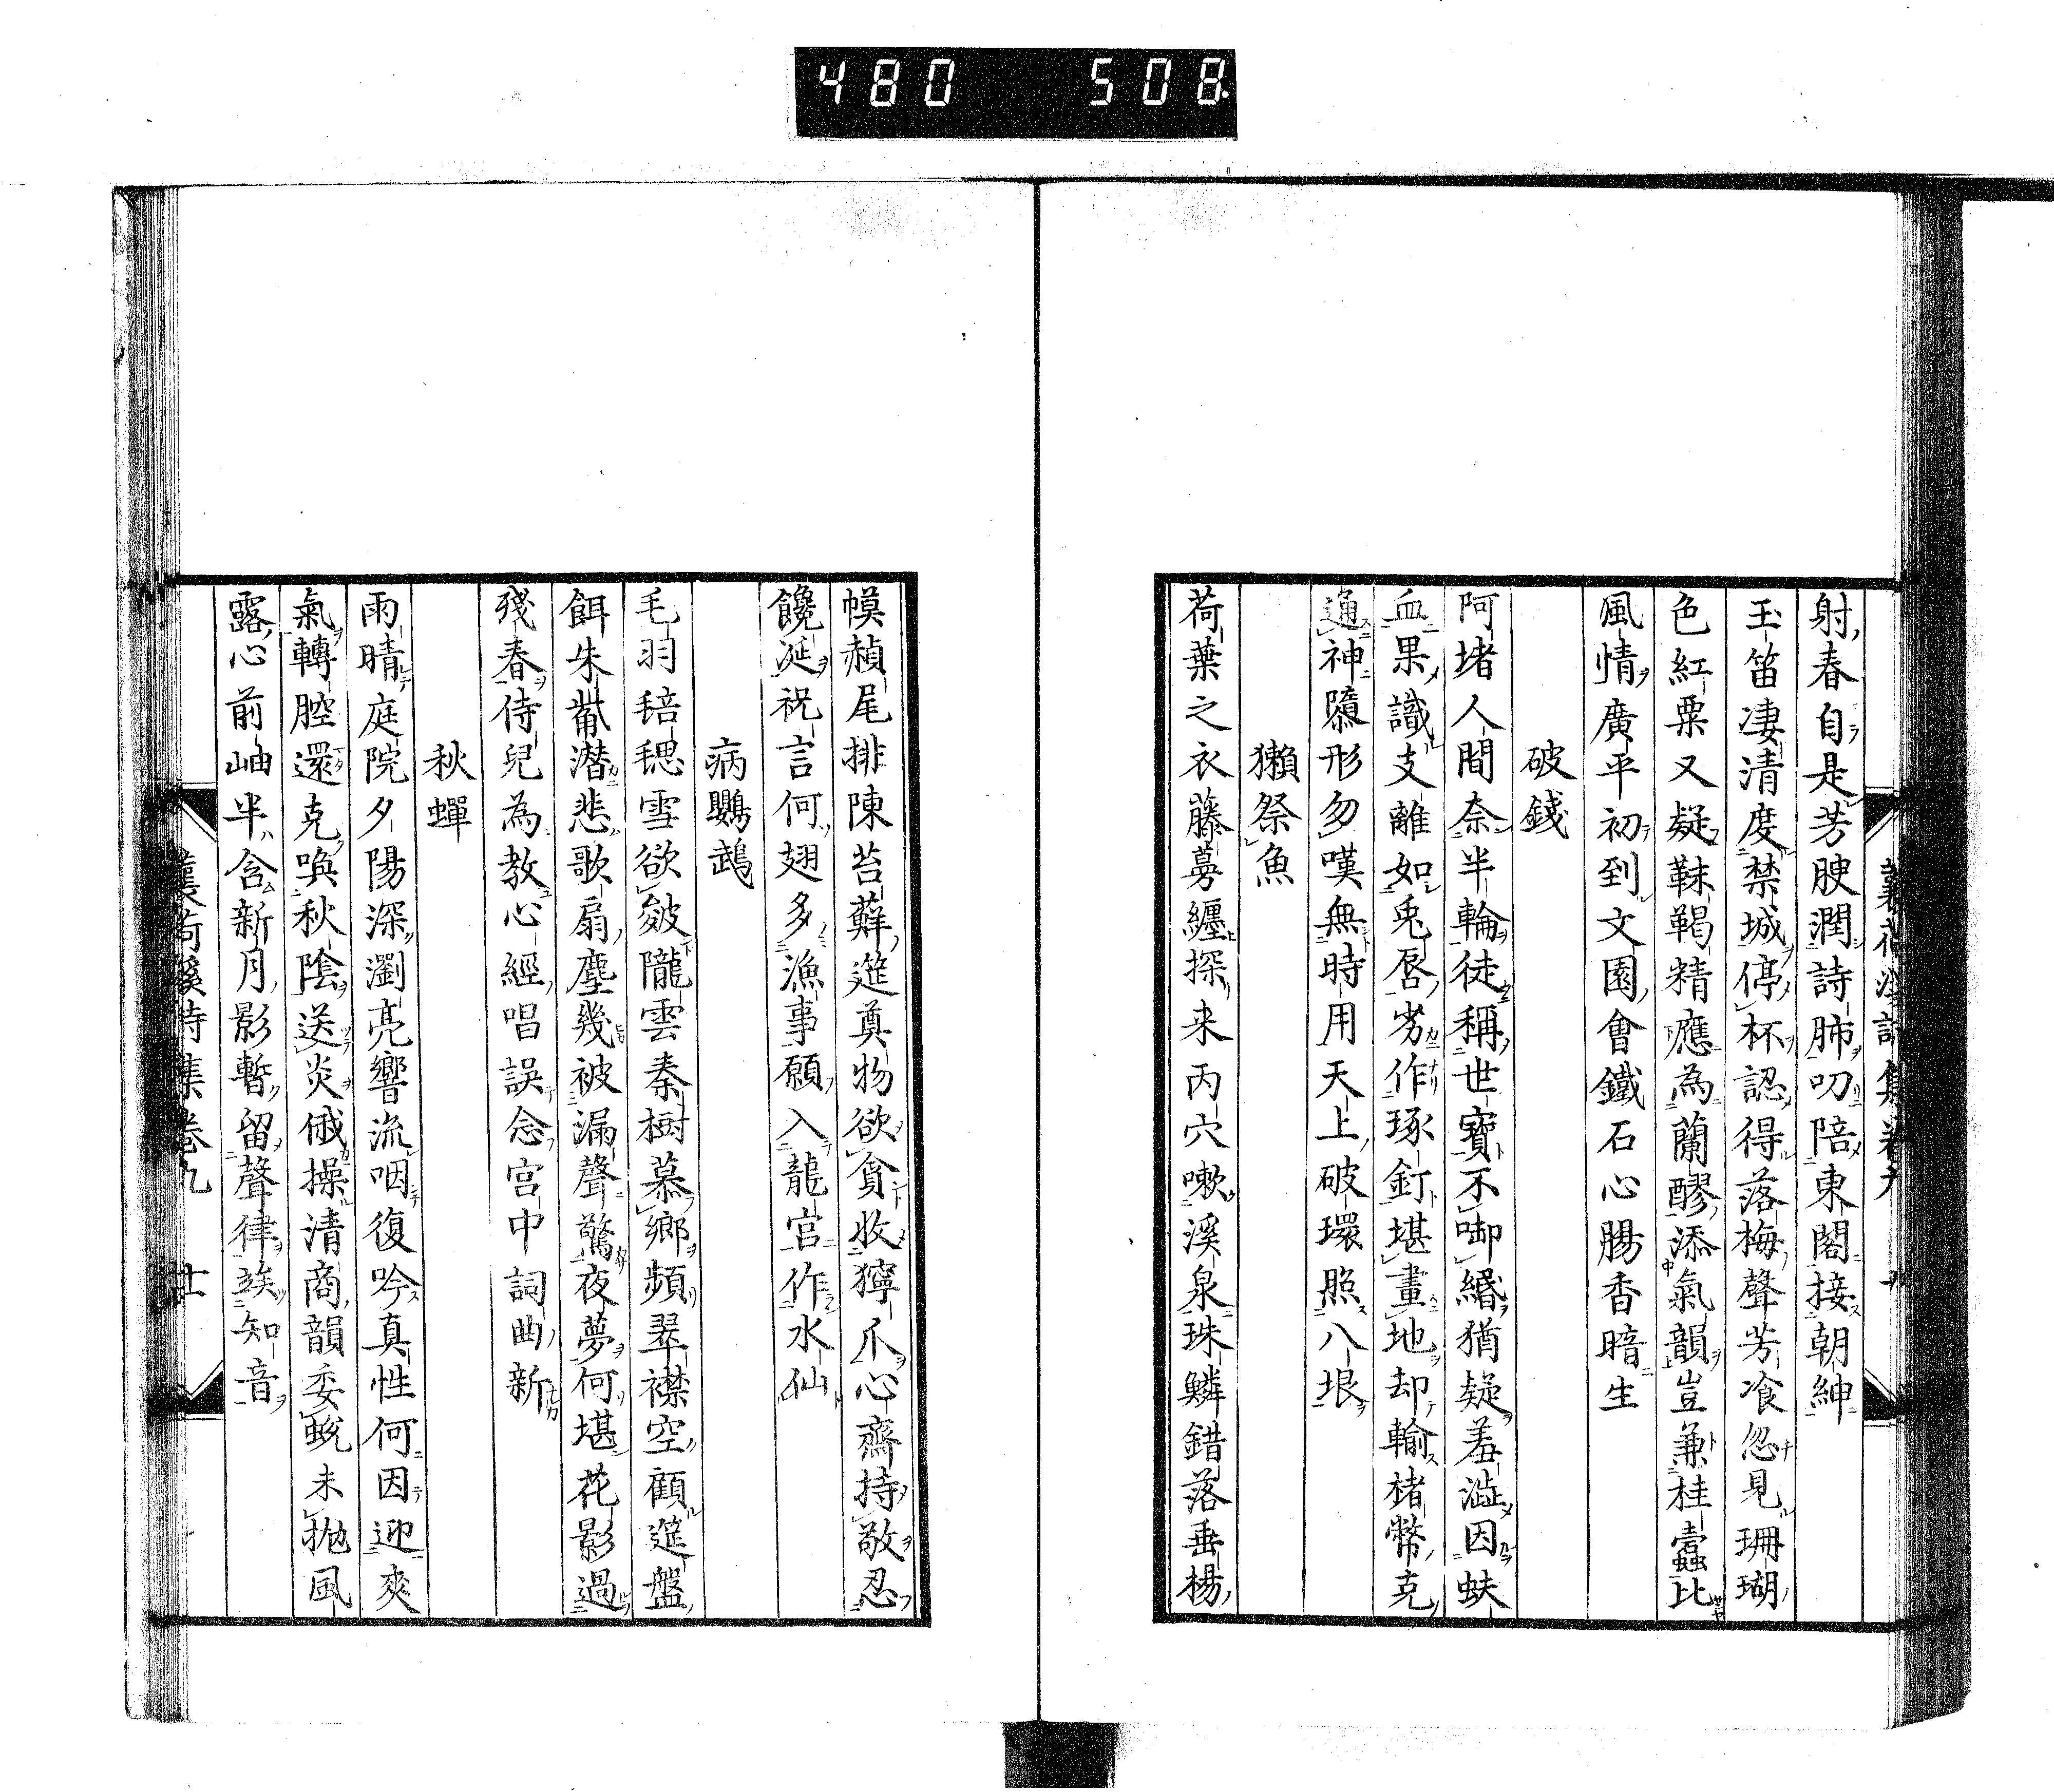 480 508.
射春自是芳腴潤詩肺叨陪東閣接朝紳
玉笛凄清度禁城停杯認得落梅聲芳飡忽見珊瑚
色紅粟又疑靺鞨精應為蘭醪添氣韻豈兼桂蠹比
風情廣平初到文園會鐵石心腸香暗生
破錢
阿堵人間奈半輪徒稱世寶不啣緡猶疑羞澁因蚨
血果識支離如兎唇劣作琢釘堪畫地却輸楮幣克
通神隳形勿嘆無時用天上破環照八垠
獺祭魚
荷葉之衣藤蔓纏探来丙穴嗽溪泉珠鱗錯落垂楊
幙赬尾排陳苔蘚筵奠物欲貪收獰爪心齋持敬忍
饞涎祝言何翅多漁事願入龍宮作水仙
病鸚鵡
毛羽䅧毸雪欲皴隴雲秦樹慕鄉頻翠襟空顧筵盤
餌朱觜潜悲歌扇塵幾被漏聲驚夜夢何堪花影過
殘春侍兒為教心經唱誤念宮中詞曲新
秋蟬
雨晴庭院夕陽深瀏亮響流咽復吟真性何因迎爽
氣轉腔還克喚秋陰送炎俄操清商韻委蛻未拋風
露心前岫半含新月影暫留聲律竢知音
蘘荷溪詩集卷九 十一